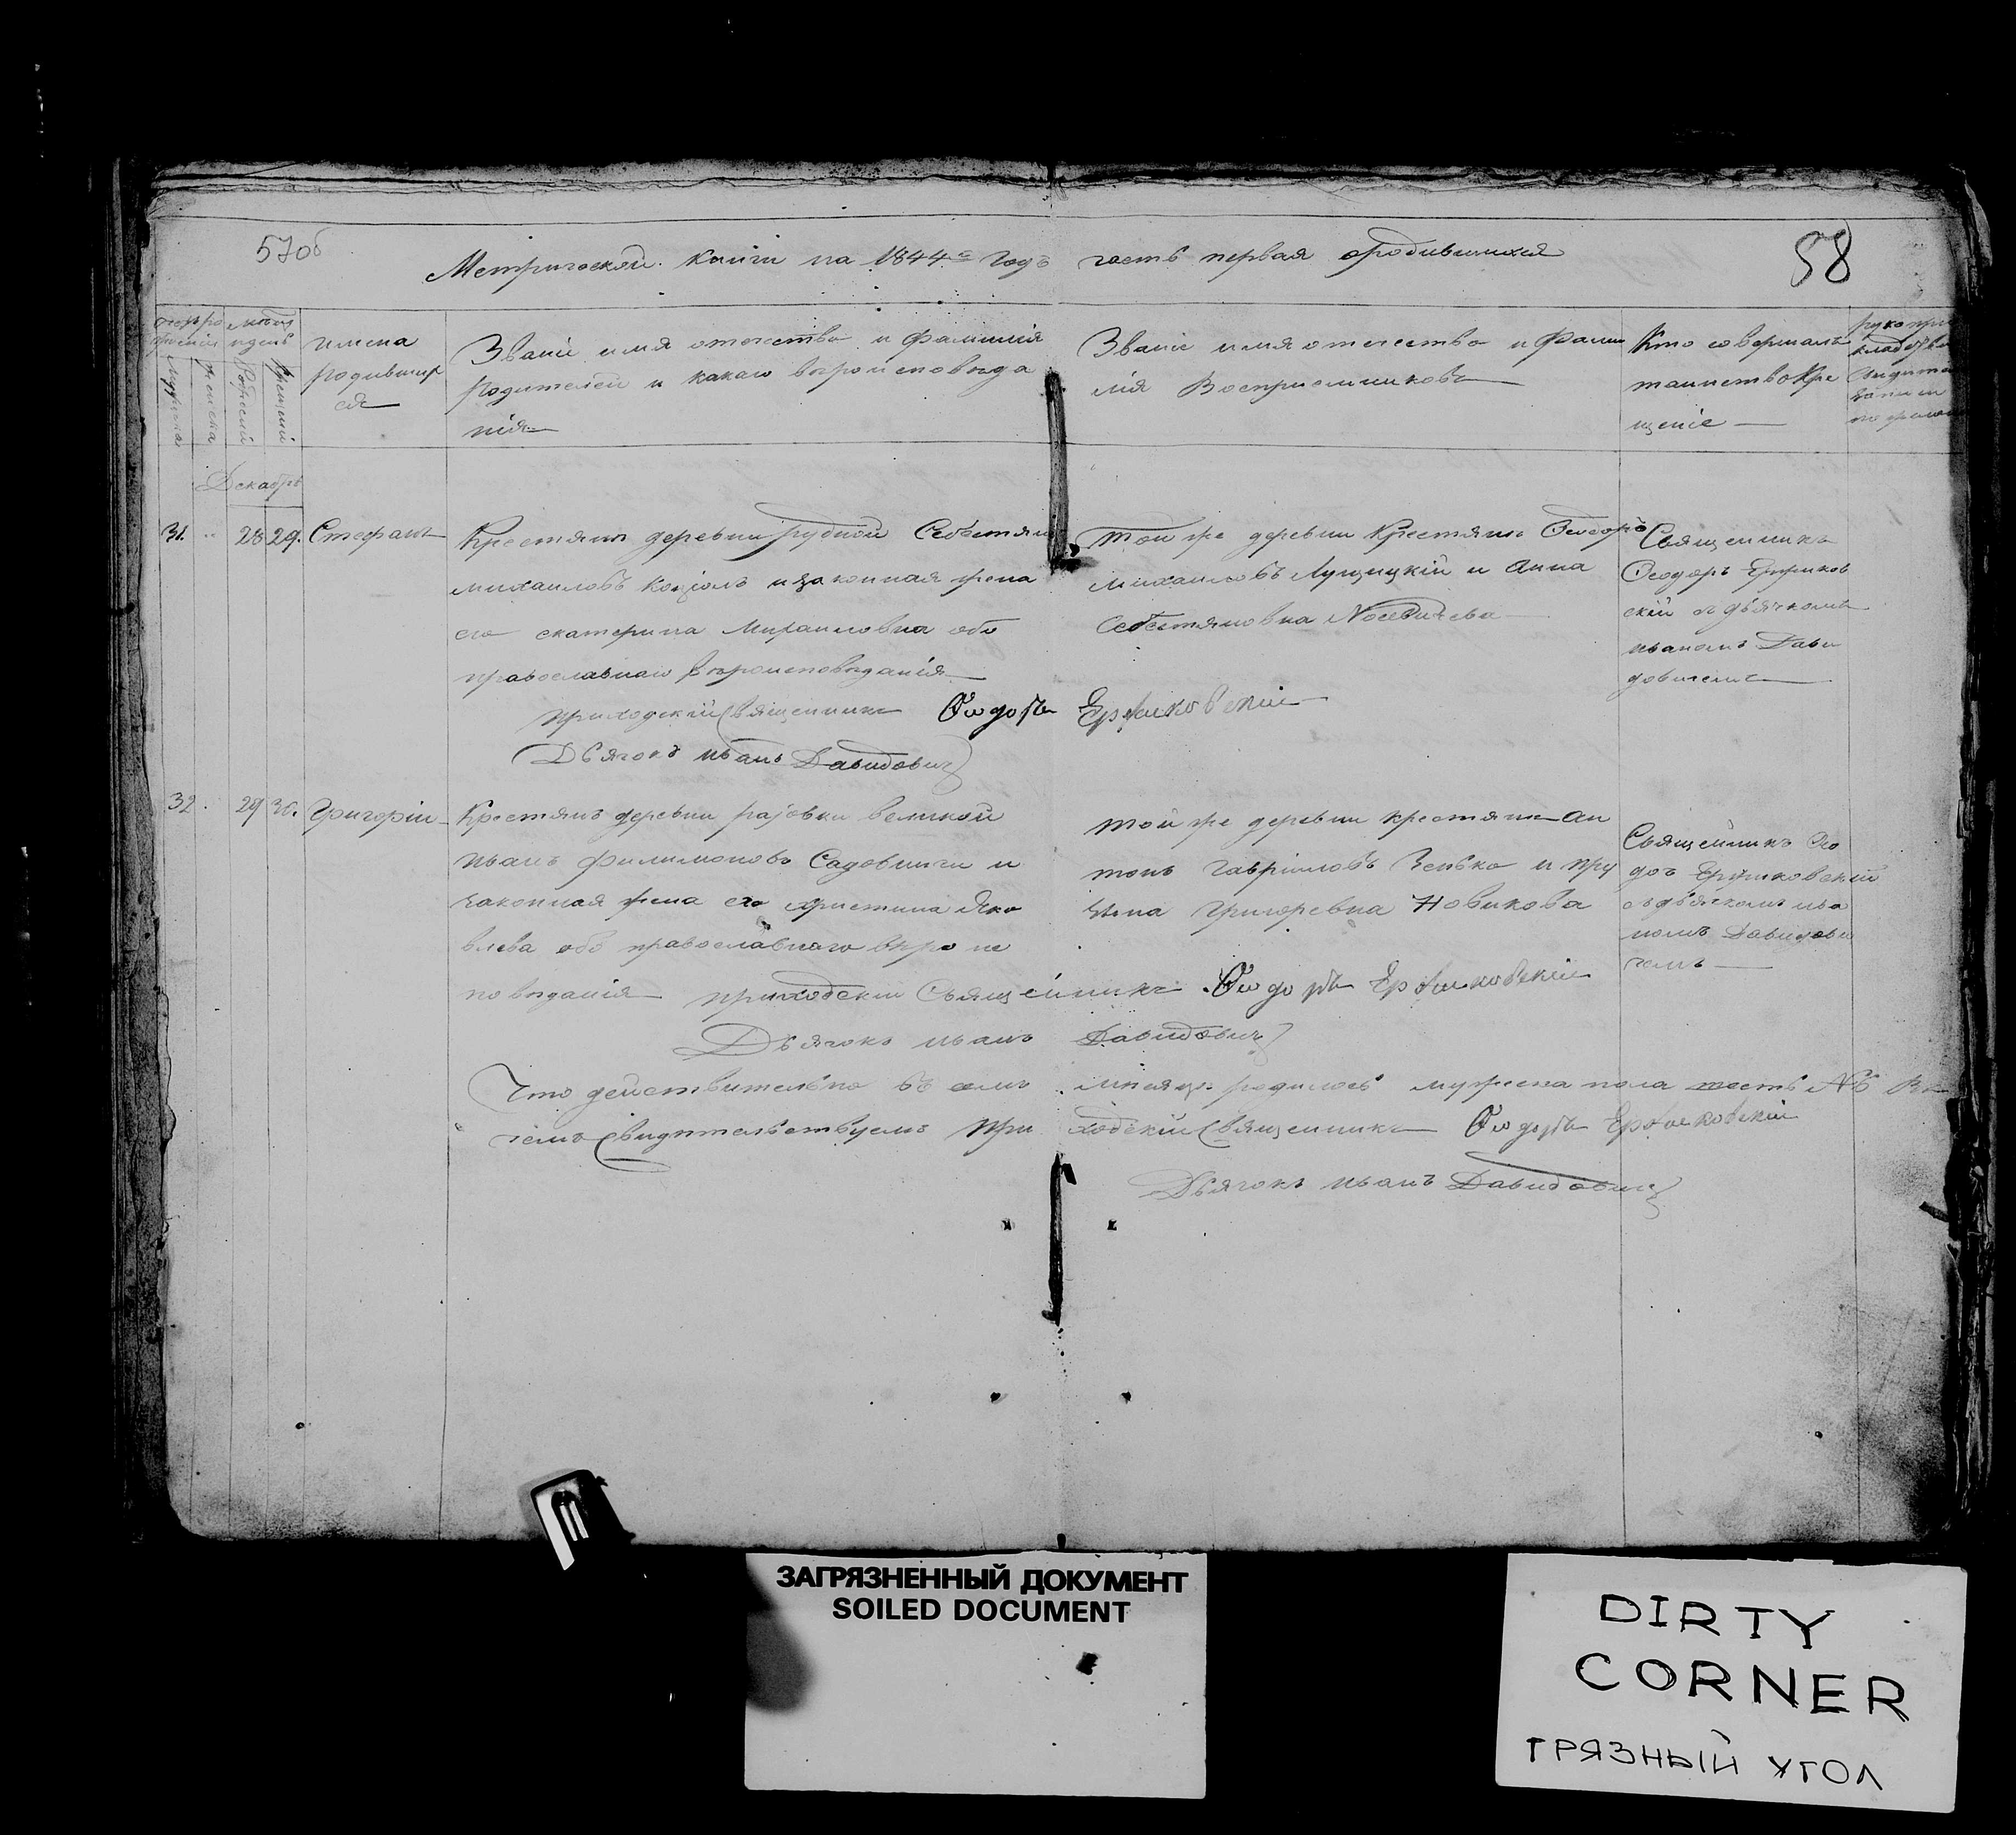 57об
58
Метрической книги на 1844й Годъ часть первая о родившихся
имена
родивших
ся
Званіе имя отечество и фамилія
родителей и какаго вѣроисповѣда
нія
Званіе имя отечество и фами
лія Воспріемниковъ
Кто совершалъ
таинство Кре
щеніе
Декабрь
31. 28 29. Стефанъ
Крестянинъ деревни рудной Себестянъ
михаиловъ Козіолъ и законная жена
его екатерина Михаиловна обо
православнаго вѣроисповѣданія
той же деревни Крестянинъ Ѳеодоръ
михаиловъ Лущицкій и Анна
Себестяновна Носевичева
Священникъ
Ѳеодоръ
скій съ дьячкомъ
иваномъ Дави
довичемъ
приходскій Священникъ Ѳеодоръ
Дьячокъ иванъ Давидовичъ
32. 29 30. Григорій
Крестянъ деревни великой
иванъ филимоновъ Садовничи и
законная жена его христина Яко
влева обо православнаго вѣроис
повѣданія
той же деревни крестянинъ Ан
тонъ Гавріиловъ Зенько и
Григоревна Новикова
Священникъ Ѳео
съ дьячкомъ ива
номъ Давидови
чемъ
приходскій Священникъ Ѳеодоръ
Дьячокъ иванъ Давидовичъ
Что действительно въ семъ месяце родилось мужеска пола шесть №6 Въ
чемъ свидѣтельствуемъ Приходскій Священникъ Ѳеодоръ
Дьячокъ иванъ Давидовичъ
ЗАГРЯЗНЕННЫЙ ДОКУМЕНТ
SOILED DOCUMENT
DIRTY
CORNER
ГРЯЗНЫЙ УГОЛ